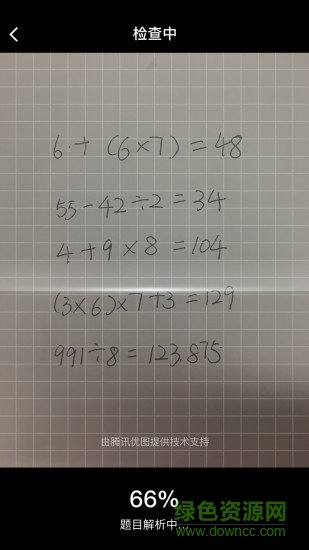 检查中
6 + (6×7) = 48
55 - 42 ÷ 2 = 34
4 + 9 × 8 = 104
(3×6)×7+3 = 129
991÷8 = 123.875
由腾讯优图提供技术支持
66%
题目解析中...
绿色资源网
www.downcc.com